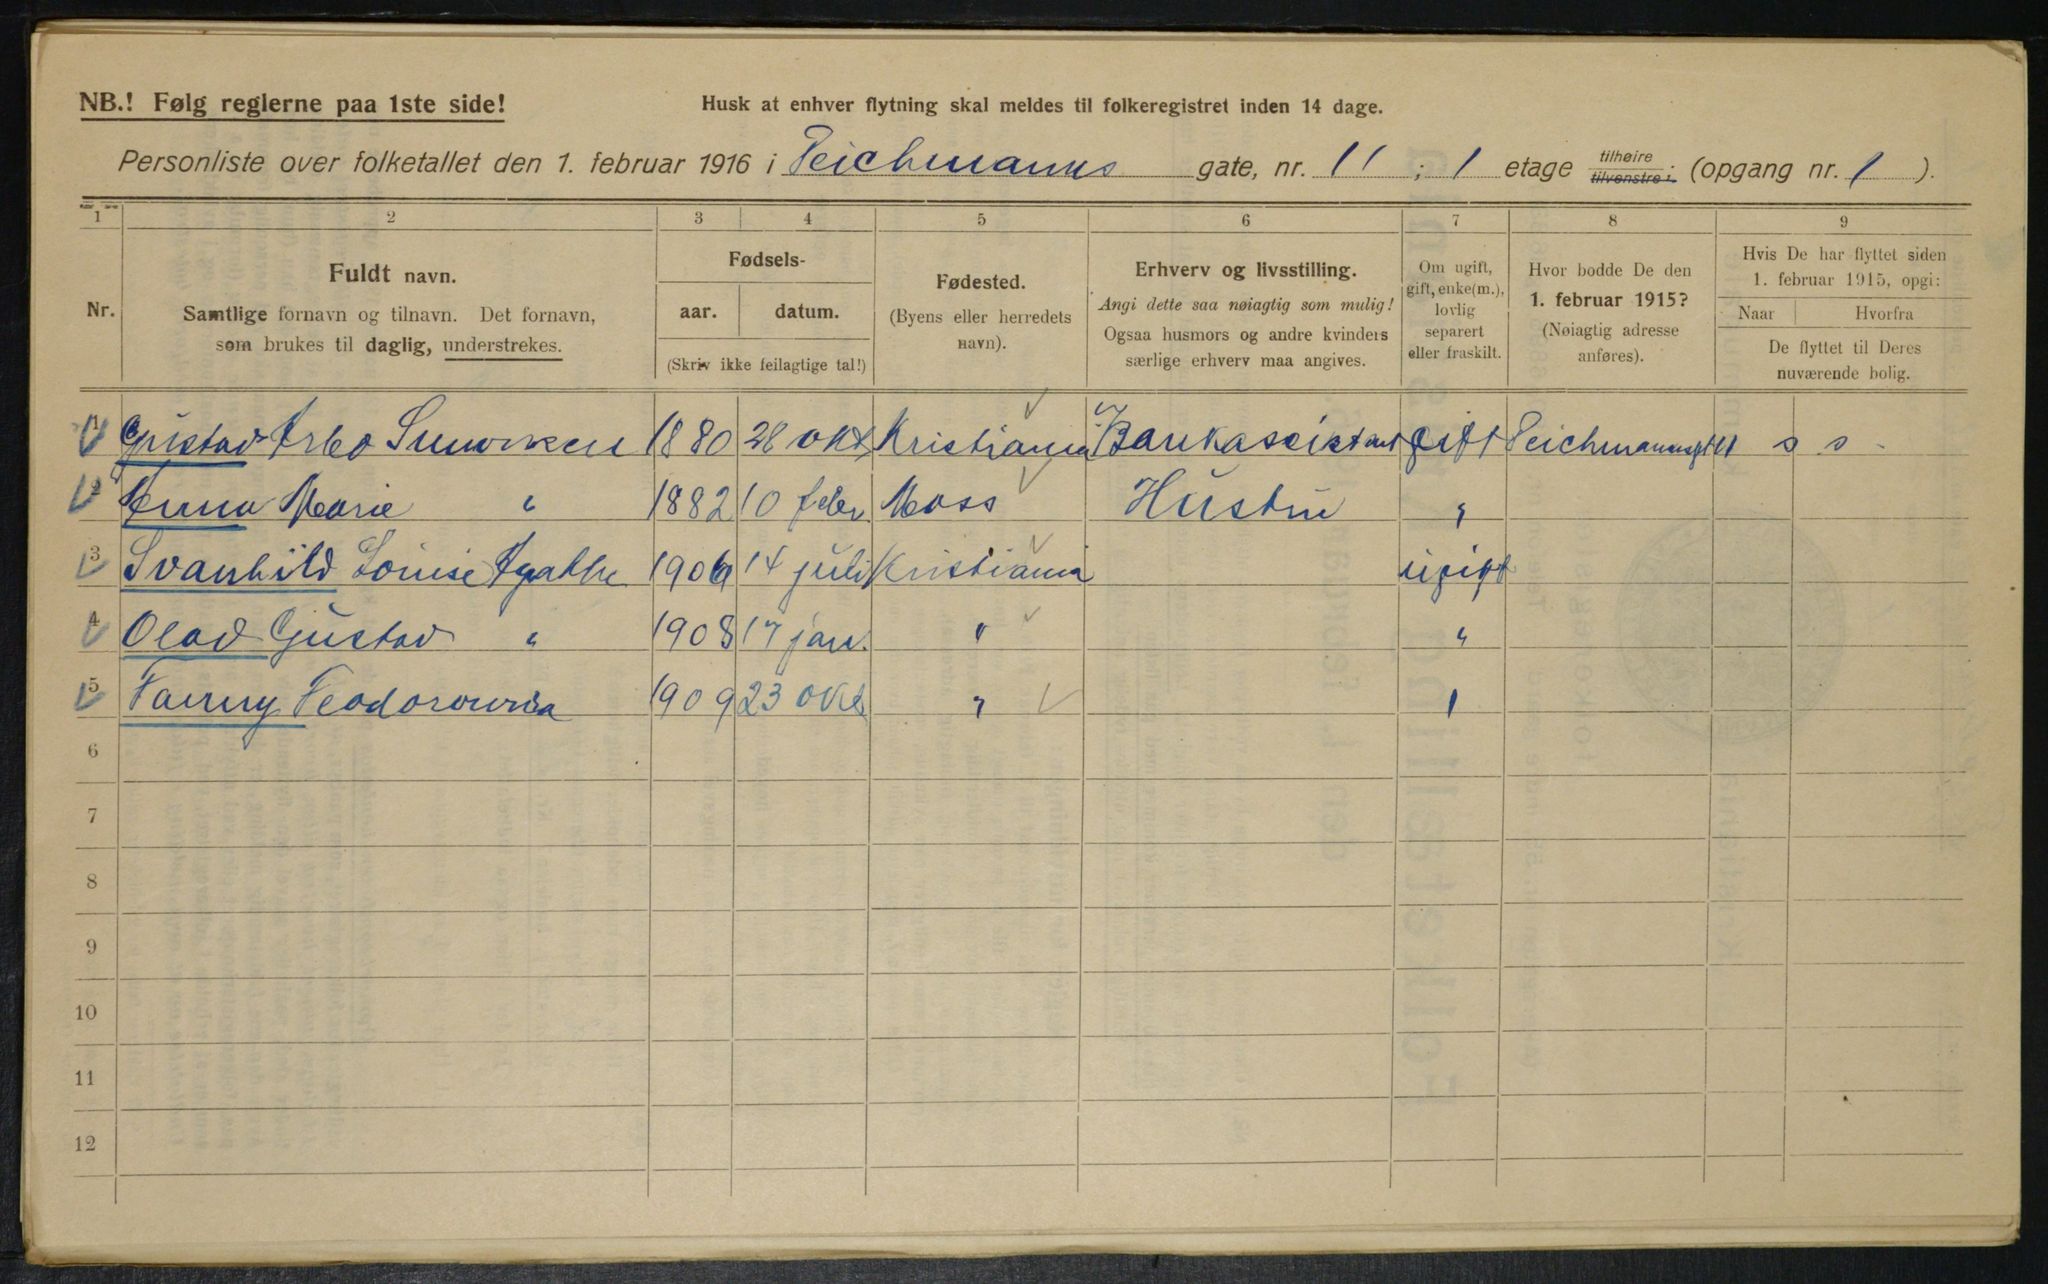 NB.! Følg reglerne paa 1ste side!
Husk at enhver flytning skal meldes til folkeregistret inden 14 dage.
Personliste over folketallet den 1. februar 1916 i Teichmanns gate, nr. 11 ; 1 etage tilhøire tilvenstre : (opgang nr. 1 ).
1 2 3 4 5 6 7 8 9
Nr.
Fuldt navn.
Samtlige fornavn og tilnavn. Det fornavn,
som brukes til daglig, understrekes.
Fødsels-
aar. datum.
(Skriv ikke feilagtige tal!)
Fødested.
(Byens eller herredets
navn).
Erhverv og livsstilling.
Angi dette saa nøiagtig som mulig!
Ogsaa husmors og andre kvinders
særlige erhverv maa angives.
Om ugift,
gift, enke(m.),
lovlig
separert
eller fraskilt.
Hvor bodde De den
1. februar 1915?
(Nøiagtig adresse
anføres).
Hvis De har flyttet siden
1. februar 1915, opgi:
Naar Hvorfra
De flyttet til Deres
nuværende bolig.
1 Gustav Arbo 1880 28 okt Kristiania Bankassistent gift Teichmannsgt 11 s s -
2 Anna Marie " 1882 10 febr. Moss Hustru "
3 Svanhild Louise Agathe 1906 14 juli Kristiania ugift
4 Olav Gustav " 1908 17 jan. " "
5 Fanny 1909 23 okt " "
6
7
8
9
10
11
12